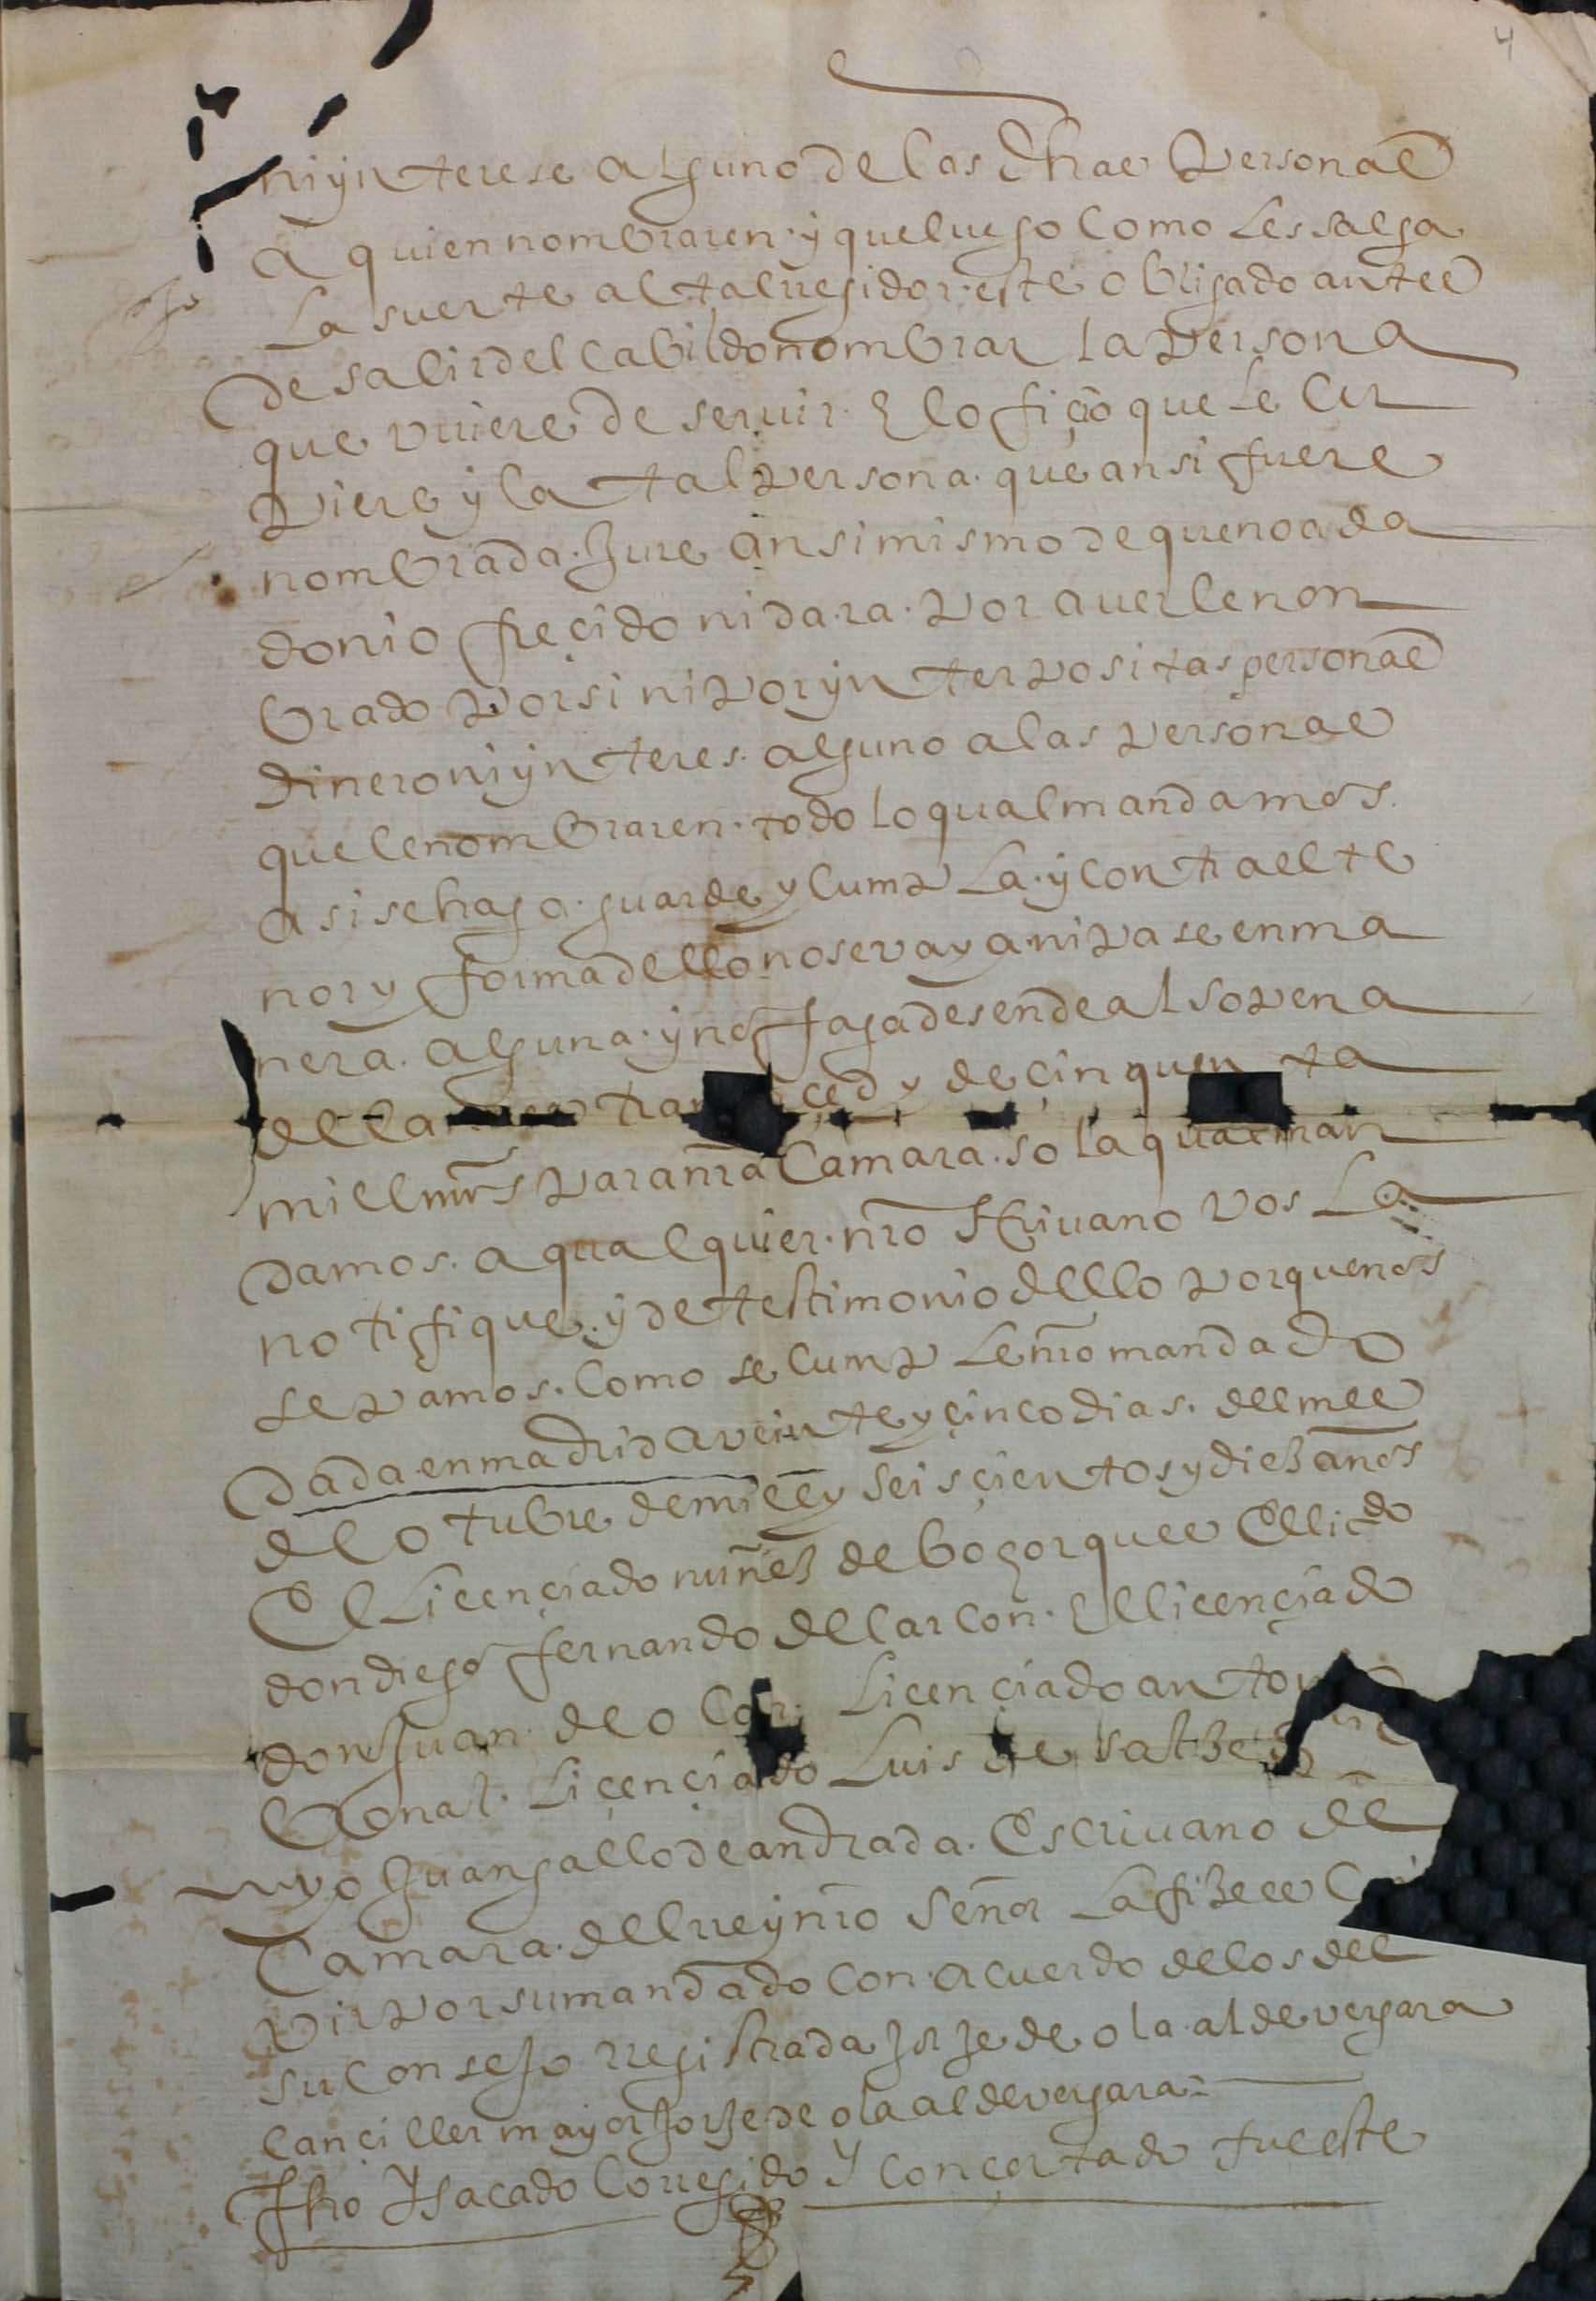 4
ni ynterese alguno de las dhas personas
a quien nombraren y que luego como les salga
la suerte al tal rregidor este obligado antes
de salir del cabildo nombrar la persona
que uuiere de seruir el ofiçio que le cu
piere y la tal persona que ansi fuere
nombrada jure ansi mismo de que no a da
do ni ofreçido ni dara por auerle non
brado por si ni por ynterpositas personas
dinero ni ynteres alguno a las personas
que le nombraren todo lo qual mandamos
asi se haga guarde y cumpla y contra el te
nor y forma dello no se vaya ni pase en ma
nera alguna y no fagades ende al so pena
de la çed y de çinquenta
mill mrs para nra camara so la qual man
damos a qualquier nro scriuano vos la
notifique y de testimonio dello porque nos
sepamos como se cumple nro mandado
dada en madrid a veinte y çinco dias del mes
de otubre de mill y seisçientos y diez años
El Licençiado nuñez de bogorques El licdo
don diego fernando de larcon El licençiado
don Juan de oco Licençiado anto
Liçençiado Luis de salze
yo Juan gallo de andrada Escriuano de
Camara del rrey nro señor La fize es
vir por su mandado con acuerdo de los del
su consejo rregistrada Jorje de olaal de vergara
cançiller mayor Jorje de olaal de vergara
fho y sacado corregido y conçertado fue este